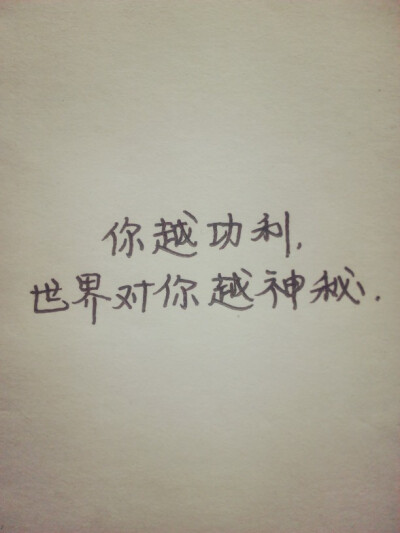 你越功利,
世界对你越神秘.